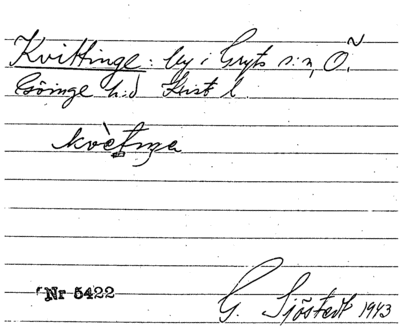 Kvittinge: by i Gryts s:n, Ö.
Göinge h:d Krist l.
kvètiŋa
Nr 5422
G. Sjöstedt 1943